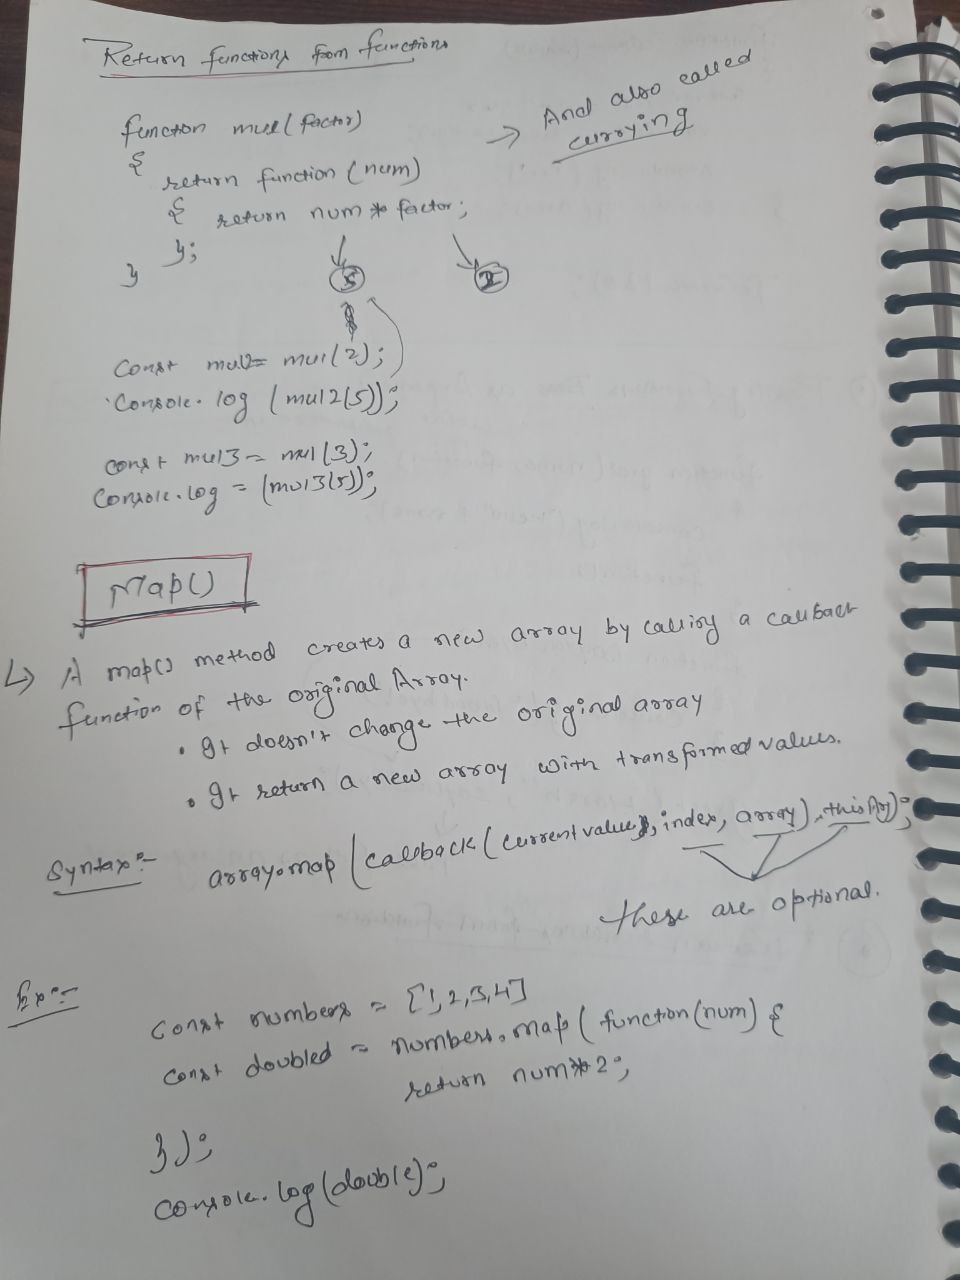 Return functions from functions
function mul(factor)
{
return function (num)
{ return num * factor;
};
}
→ And also called
currying
5
2
Const mul2 = mul(2);
Console.log (mul2(5));
const mul3 = mul(3);
Console.log = (mul3(5));
Map()
↳ A map() method creates a new array by calling a callback
function of the original Array.
• It doesn't change the original array
• It return a new array with transformed values.
Syntax:- array.map (callback(currentvalue, index, array), thisArg);
these are optional.
Ex:-
const numbers = [1,2,3,4]
const doubled = numbers.map(function(num) {
return num*2;
});
console.log(double);